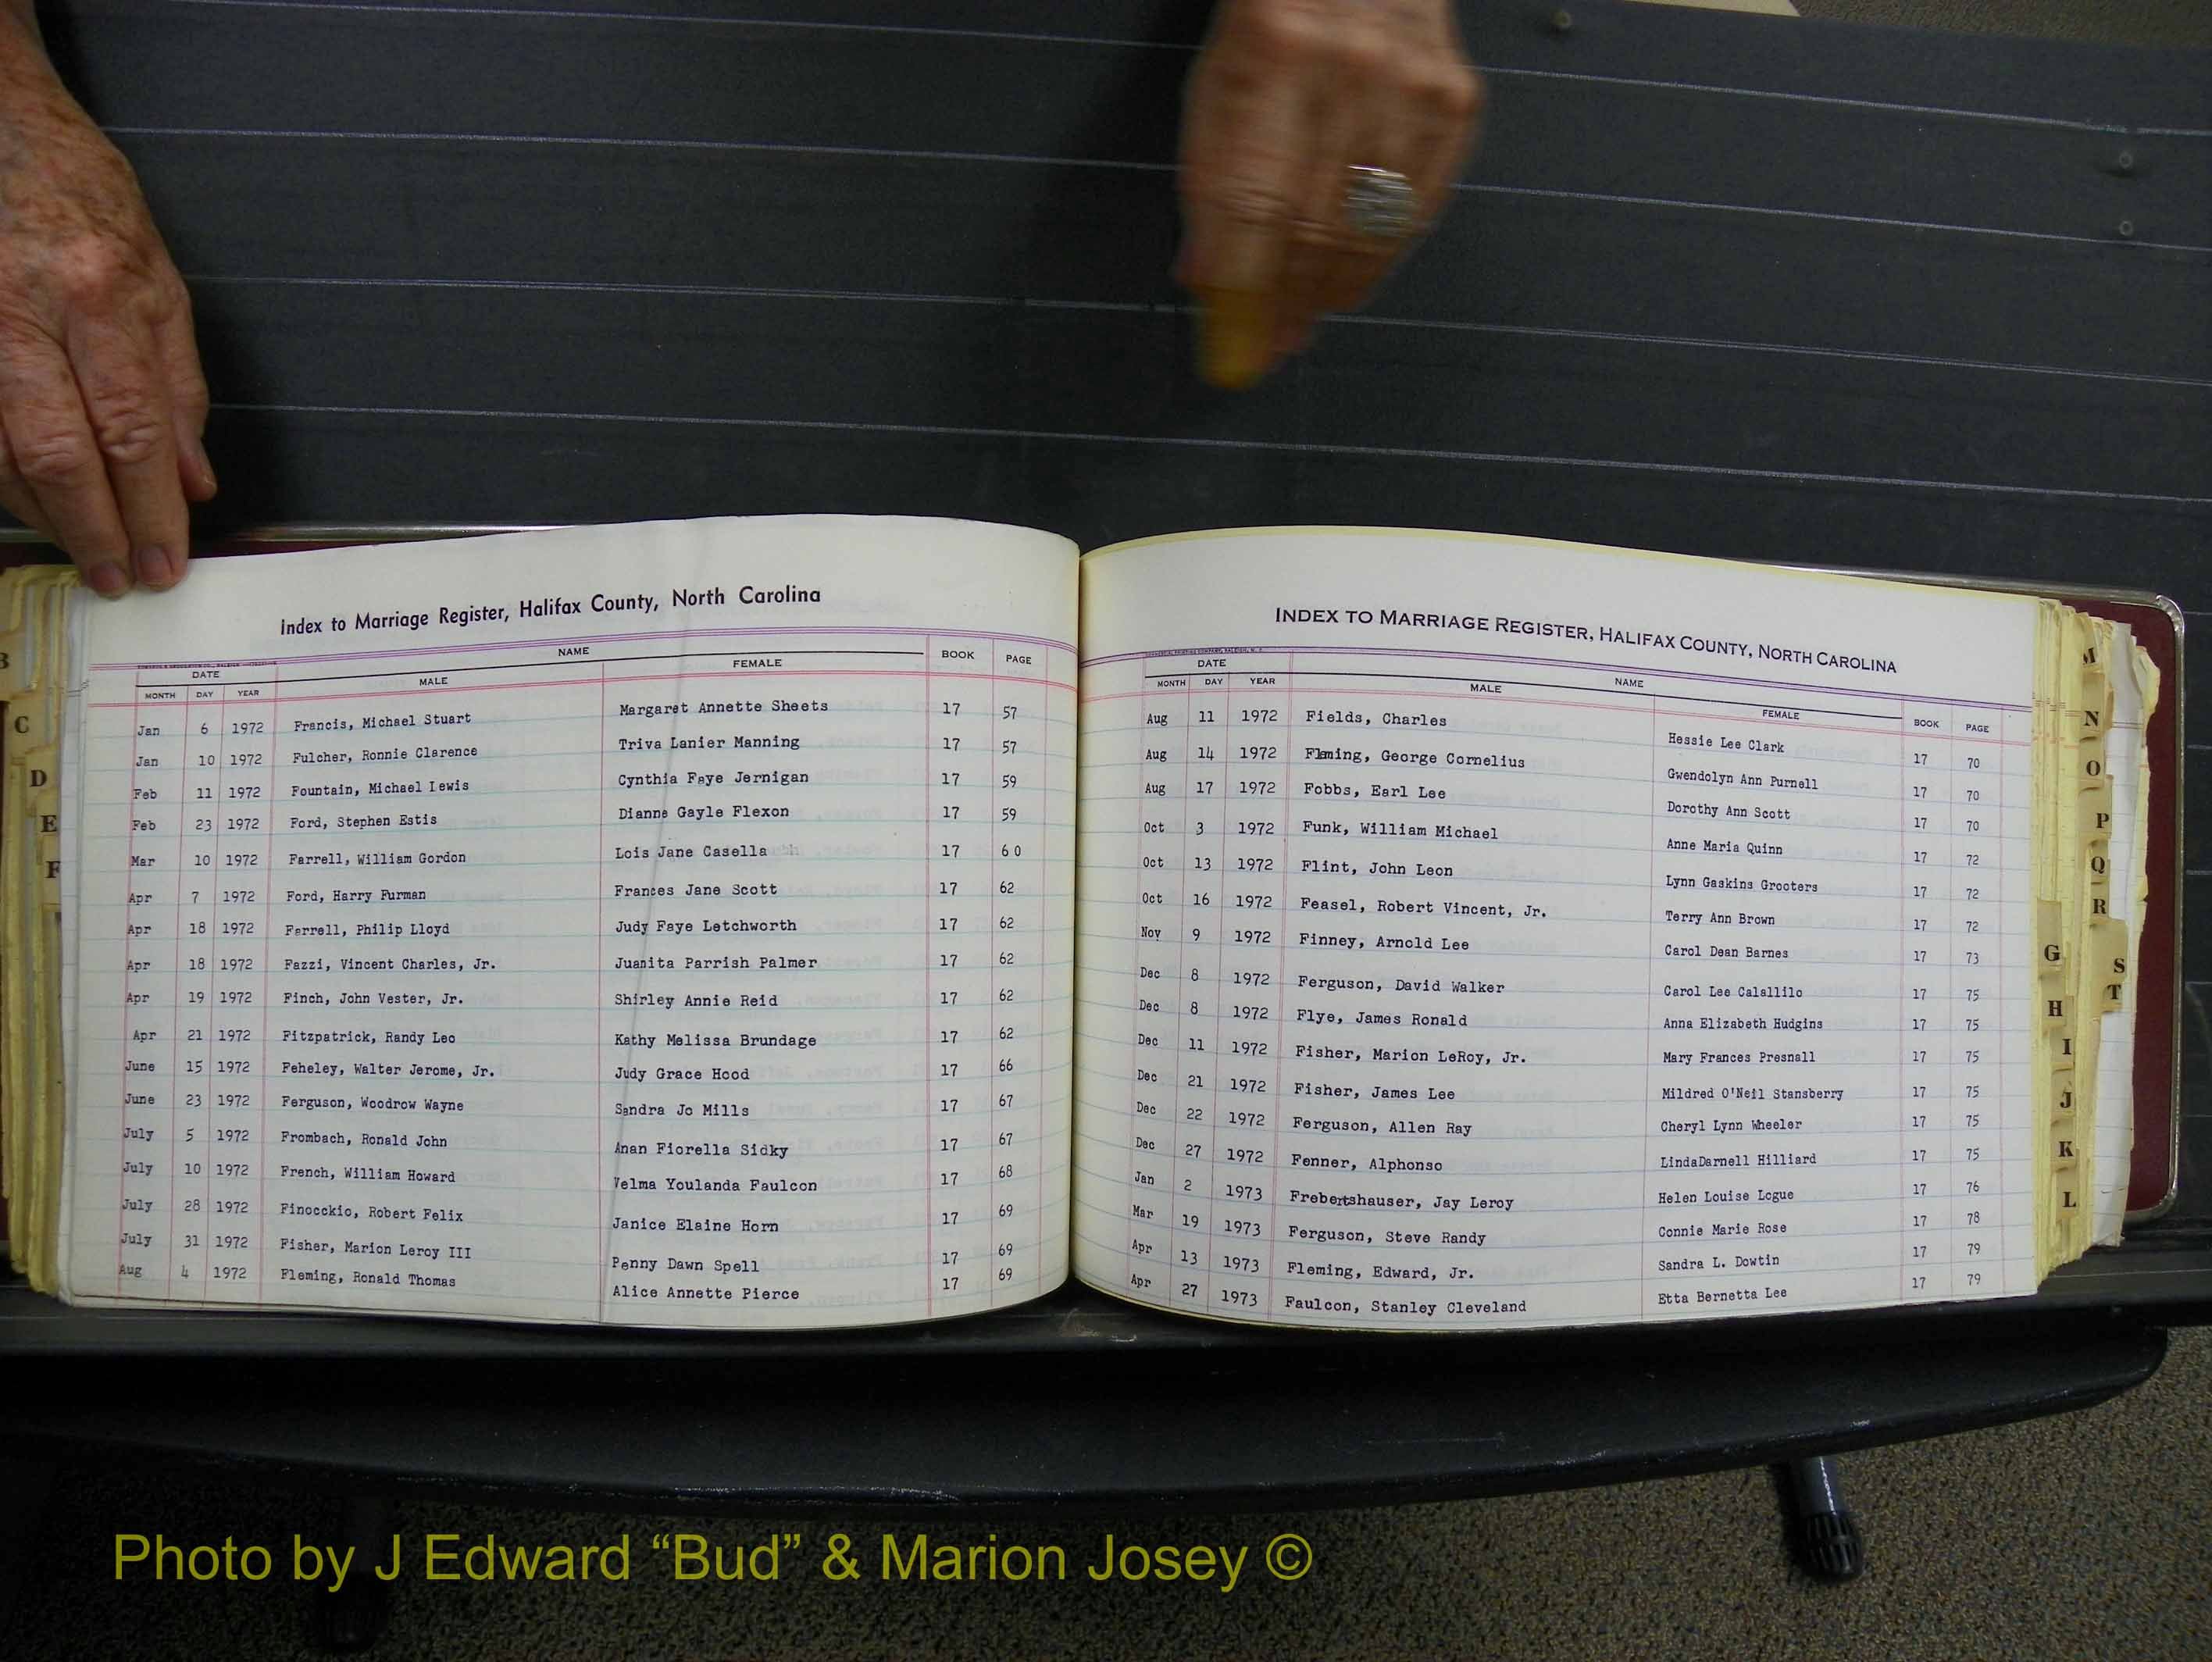 Index to Marriage Register, Halifax County, North Carolina
NAME
DATE
MALE
FEMALE
BOOK
PAGE
MONTH DAY YEAR
Jan 6 1972 Francis, Michael Stuart Margaret Annette Sheets 17 57
Jan 10 1972 Fulcher, Ronnie Clarence Triva Lanier Manning 17 57
Feb 11 1972 Fountain, Michael Lewis Cynthia Faye Jernigan 17 59
Feb 23 1972 Ford, Stephen Estis Dianne Gayle Flexon 17 59
Mar 10 1972 Farrell, William Gordon Lois Jane Casella 17 60
Apr 7 1972 Ford, Harry Furman Frances Jane Scott 17 62
Apr 18 1972 Farrell, Philip Lloyd Judy Faye Letchworth 17 62
Apr 18 1972 Fazzi, Vincent Charles, Jr. Juanita Parrish Palmer 17 62
Apr 19 1972 Finch, John Vester, Jr. Shirley Annie Reid 17 62
Apr 21 1972 Fitzpatrick, Randy Leo Kathy Melissa Brundage 17 62
June 15 1972 Feheley, Walter Jerome, Jr. Judy Grace Hood 17 66
June 23 1972 Ferguson, Woodrow Wayne Sandra Jo Mills 17 67
July 5 1972 Frombach, Ronald John Anan Fiorella Sidky 17 67
July 10 1972 French, William Howard Velma Youlanda Faulcon 17 68
July 28 1972 Finocckio, Robert Felix Janice Elaine Horn 17 69
July 31 1972 Fisher, Marion Leroy III Penny Dawn Spell 17 69
Aug 4 1972 Fleming, Ronald Thomas Alice Annette Pierce 17 69
INDEX TO MARRIAGE REGISTER, HALIFAX COUNTY, NORTH CAROLINA
DATE
NAME
MONTH DAY YEAR
MALE
FEMALE
BOOK
PAGE
Aug 11 1972 Fields, Charles Hessie Lee Clark 17 70
Aug 14 1972 Fleming, George Cornelius Gwendolyn Ann Purnell 17 70
Aug 17 1972 Fobbs, Earl Lee Dorothy Ann Scott 17 70
Oct 3 1972 Funk, William Michael Anne Maria Quinn 17 72
Oct 13 1972 Flint, John Leon Lynn Gaskins Grooters 17 72
Oct 16 1972 Feasel, Robert Vincent, Jr. Terry Ann Brown 17 72
Nov 9 1972 Finney, Arnold Lee Carol Dean Barnes 17 73
Dec 8 1972 Ferguson, David Walker Carol Lee Calallilo 17 75
Dec 8 1972 Flye, James Ronald Anna Elizabeth Hudgins 17 75
Dec 11 1972 Fisher, Marion LeRoy, Jr. Mary Frances Presnall 17 75
Dec 21 1972 Fisher, James Lee Mildred O'Neil Stansberry 17 75
Dec 22 1972 Ferguson, Allen Ray Cheryl Lynn Wheeler 17 75
Dec 27 1972 Fenner, Alphonso LindaDarnell Hilliard 17 75
Jan 2 1973 Frebertshauser, Jay Leroy Helen Louise Logue 17 76
Mar 19 1973 Ferguson, Steve Randy Connie Marie Rose 17 78
Apr 13 1973 Fleming, Edward, Jr. Sandra L. Dowtin 17 79
Apr 27 1973 Faulcon, Stanley Cleveland Etta Bernetta Lee 17 79
B
C
D
E
F
G
H
I
J
K
L
M
N
O
P
Q
R
S
T
Photo by J Edward “Bud” & Marion Josey ©